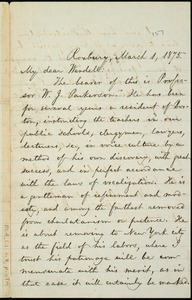 Roxbury, March 1, 1875.
My dear Wendell:
The bearer of this is Profes-
sor W. J. Parkerson. He has been
for several years a resident of Bos-
ton, instructing the teachers in our
public schools, clergymen, lawyers,
lecturers, &c., in voice culture by a
method of his own discovery, with great
success, and in perfect accordance
with the laws of vocalization. He
is a gentleman of refinement and mod-
esty, and among the farthest removed
from charlatanism or pretence. He
is about removing to New York city
as the field of his labors, where I
trust his patronage will be com-
mensurate with his merit, as in
that case it will certainly be marked